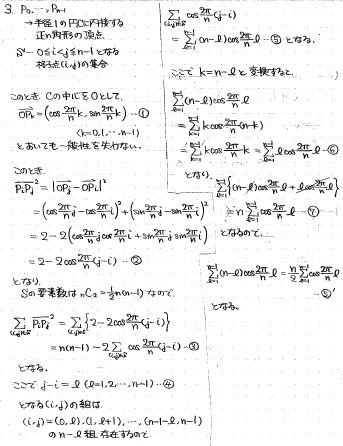 3. P₀, …, Pₙ₋₁
→ 半径1の円Cに内接する
正n角形の頂点
S … 0≦i<j≦n-1となる
格子点(i,j)の集合
このとき、Cの中心をOとして、
OPₖ = (cos 2π/n k, sin 2π/n k) …①
(k=0,1,…,n-1)
とおいても一般性を失わない。
このとき
PᵢPⱼ² = |OPⱼ - OPᵢ|²
= (cos 2π/n j - cos 2π/n i)² + (sin 2π/n j - sin 2π/n i)²
= 2 - 2(cos 2π/n j cos 2π/n i + sin 2π/n j sin 2π/n i)
= 2 - 2cos 2π/n (j-i) …②
となり
Sの要素数は nC₂ = 1/2 n(n-1) なので
Σ(i,j)∈S PᵢPⱼ² = Σ(i,j)∈S {2 - 2cos 2π/n (j-i)}
= n(n-1) - 2 Σ(i,j)∈S cos 2π/n (j-i) …③
となる。
ここで j-i = l (l=1,2,…,n-1) …④
となる(i,j)の組は
(i,j) = (0,l), (1,l+1), …, (n-1-l, n-1)
の n-l 組 存在するので
Σ(i,j)∈S cos 2π/n (j-i)
= Σ[l=1, n-1] (n-l)cos 2π/n l …⑤ となる。
ここで k=n-l と変換すると、
Σ[l=1, n-1] (n-l)cos 2π/n l
= Σ[k=1, n-1] k cos 2π/n (n-k)
= Σ[k=1, n-1] k cos 2π/n k = Σ[l=1, n-1] l cos 2π/n l …⑥
となり、
Σ[l=1, n-1] {(n-l)cos 2π/n l + l cos 2π/n l}
= n Σ[l=1, n-1] cos 2π/n l …⑦
となるので
Σ[l=1, n-1] (n-l)cos 2π/n l = n/2 Σ[l=1, n-1] cos 2π/n l
…⑤'
となる。